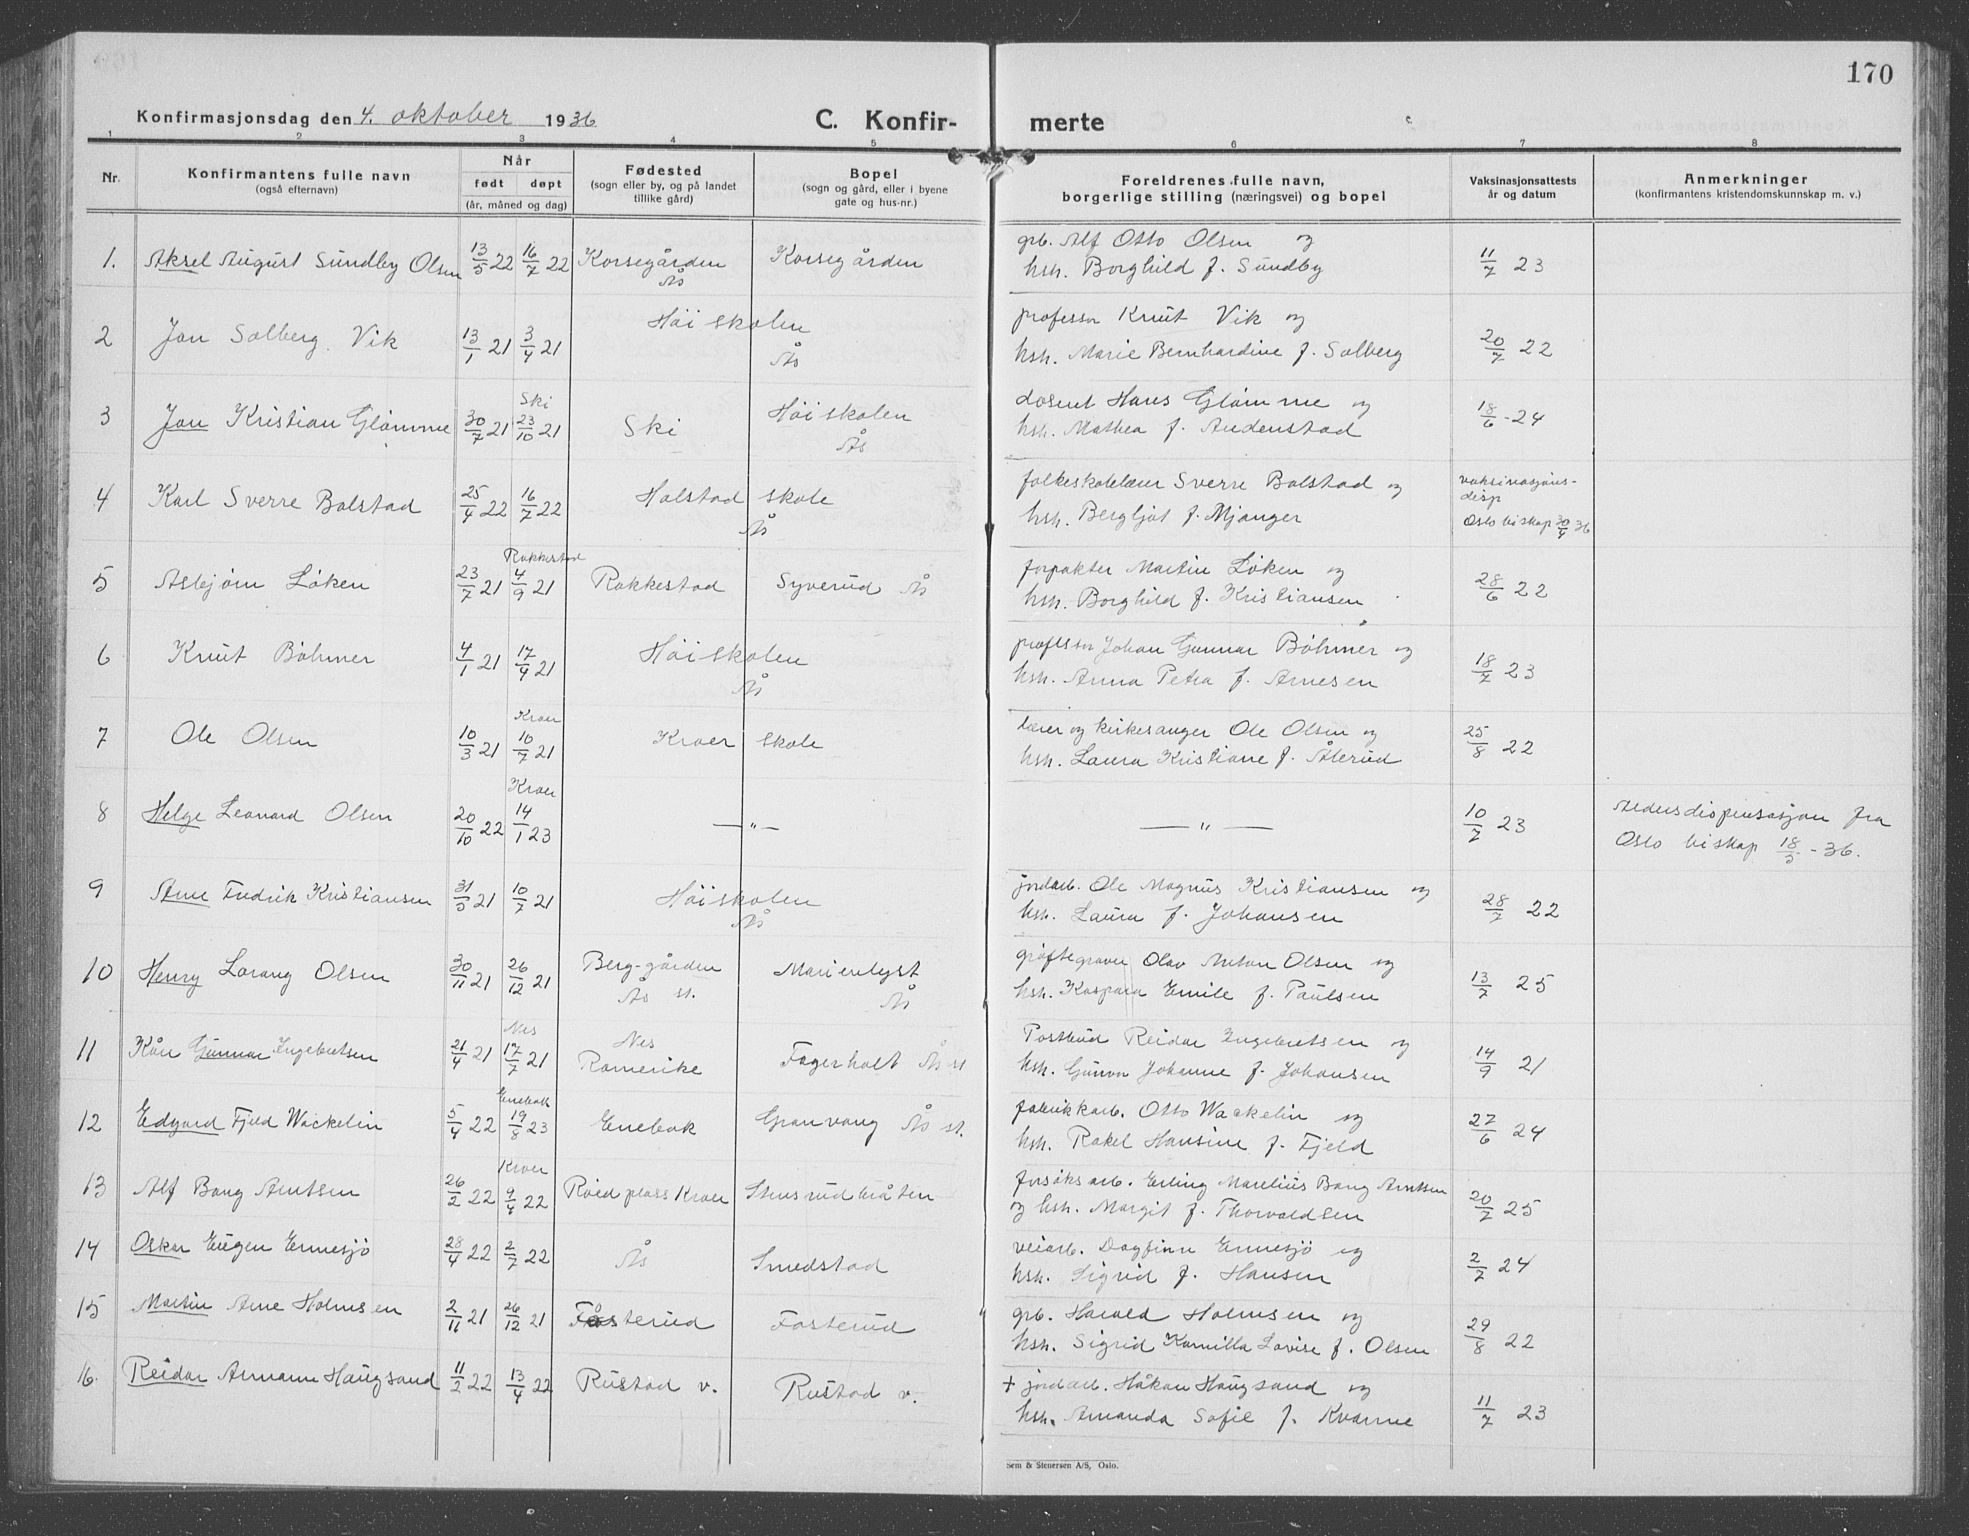 170
Konfirmasjonsdag den 4. oktober 1936 C. Konfir- merte
1 2 3 4 5 6 7 8
Nr. Konfirmantens fulle navn (også efternavn) Når født døpt (år, måned og dag) Fødested (sogn eller by, og på landet tillike gård) Bopel (sogn og gård, eller i byene gate og hus-nr.) Foreldrenes fulle navn, borgerlige stilling (næringsvei) og bopel Vaksinasjonsattests år og datum Anmerkninger (konfirmantens kristendomskunnskap m. v.)
1. Aksel August Sundby Olsen 13/5 22 16/7 22 Korsegården Ås Korsegården grb. Alf Otto Olsen og
hsh. Borghild f. Sundby 11/7 23
2 Jon Solberg Vik 13/1 21 3/4 21 Höiskolen Ås professor Knut Vik og
hsh. Marie Bernhardine f. Solberg 20/7 22
3 Jon Kristian Glömme 30/7 21 Ski 23/10 21 Ski Höiskolen Ås dosent Hans Glömme og
hsh. Mathea f. Audenstad 18/6 - 24
4 Karl Sverre Bolstad 25/4 22 16/7 22 Holstad skole Ås folkeskolelærer Sverre Bolstad og
hsh. Bergljot f. Mjanger vaksinasjons-disp Oslo biskap 30/4 36
5 Asbjörn Löken 23/7 21 Rakkestad 4/9 21 Rakkestad Syverud Ås forpakter Martin Löken og
hsh. Borghild f. Kristiansen 28/6 22
6 Knut Böhmer 4/1 21 17/4 21 Höiskolen Ås professor Johan Gunnar Böhmer og
hsh. Anna Petra f. Arnesen 18/7 23
7 Ole Olsen 10/3 21 Kroer 10/7 21 Kroer skole lærer og kirkesanger Ole Olsen og
hsh. Laura Kristiane f. Återud 25/8 22
8 Helge Leonard Olsen 20/10 22 Kroer 14/1 23 — " — — " — 10/7 23 Aldersdispensasjon fra
Oslo biskap 18/5 - 36.
9 Arne Fredrik Kristiansen 31/5 21 10/7 21 Höiskolen Ås jordarb. Ole Magnus Kristiansen og
hsh. Laura f. Johansen 28/7 22
10 Henry Lorang Olsen 30/11 21 26/12 21 Berg-gården Ås st. Marienlyst Ås gröftegraver Olav Anton Olsen og
hsh. Kaspara Emile f. Paulsen 13/7 25
11 Kåre Gunnar Ingebretsen 21/4 21 Nes 17/7 21 Nes Romerike Fagerholt Ås st Postbud Reidar Ingebretsen og
hsh. Gunvor Johanne f. Johansen 14/9 21
12 Edgard Fjeld Wackelin 5/4 22 Enebak 19/8 23 Enebak Granvang Ås st. fabrikkarb. Otto Wackelin og
hsh. Rakel Hansine f. Fjeld 27/6 24
13 Alf Bang Arntsen 26/2 22 Kroer 9/4 22 Röed plass Kroer Stensrudbråten forsöksarb. Erling Marelius Bang Arntsen
og hsh. Margit f. Thorvaldsen 20/7 25
14 Oskar Eugen Ennesjö 28/4 22 2/7 22 Ås Smedstad veiarb. Dagfinn Ennesjö og
hsh. Sigrid f. Hansen 2/7 24
15 Martin Arne Holmsen 2/11 21 26/12 21 Fosterud Fosterud grb. Harald Holmsen og
hsh. Sigrid Kamilla Lovise f. Olsen 29/8 22
16. Reidar Armann Haugsand 11/2 22 13/4 22 Rustad v. Rustad v. + jordarb. Håkon Haugsand og
hsh. Amanda Sofie f. Kvarme 11/7 23
Sem & Stenersen A/S, Oslo.